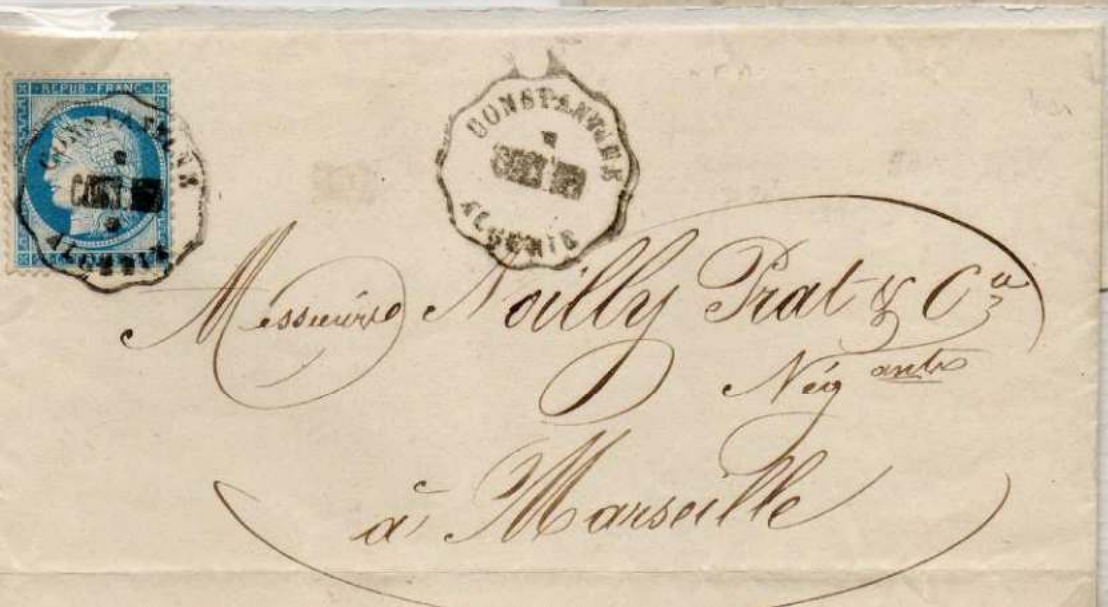 REPUB·FRANC
CONSTANTINE
ALGERIE
CONSTANTINE
ALGERIE
Messieurs Noilly Prat & Cie
Négants
à Marseille